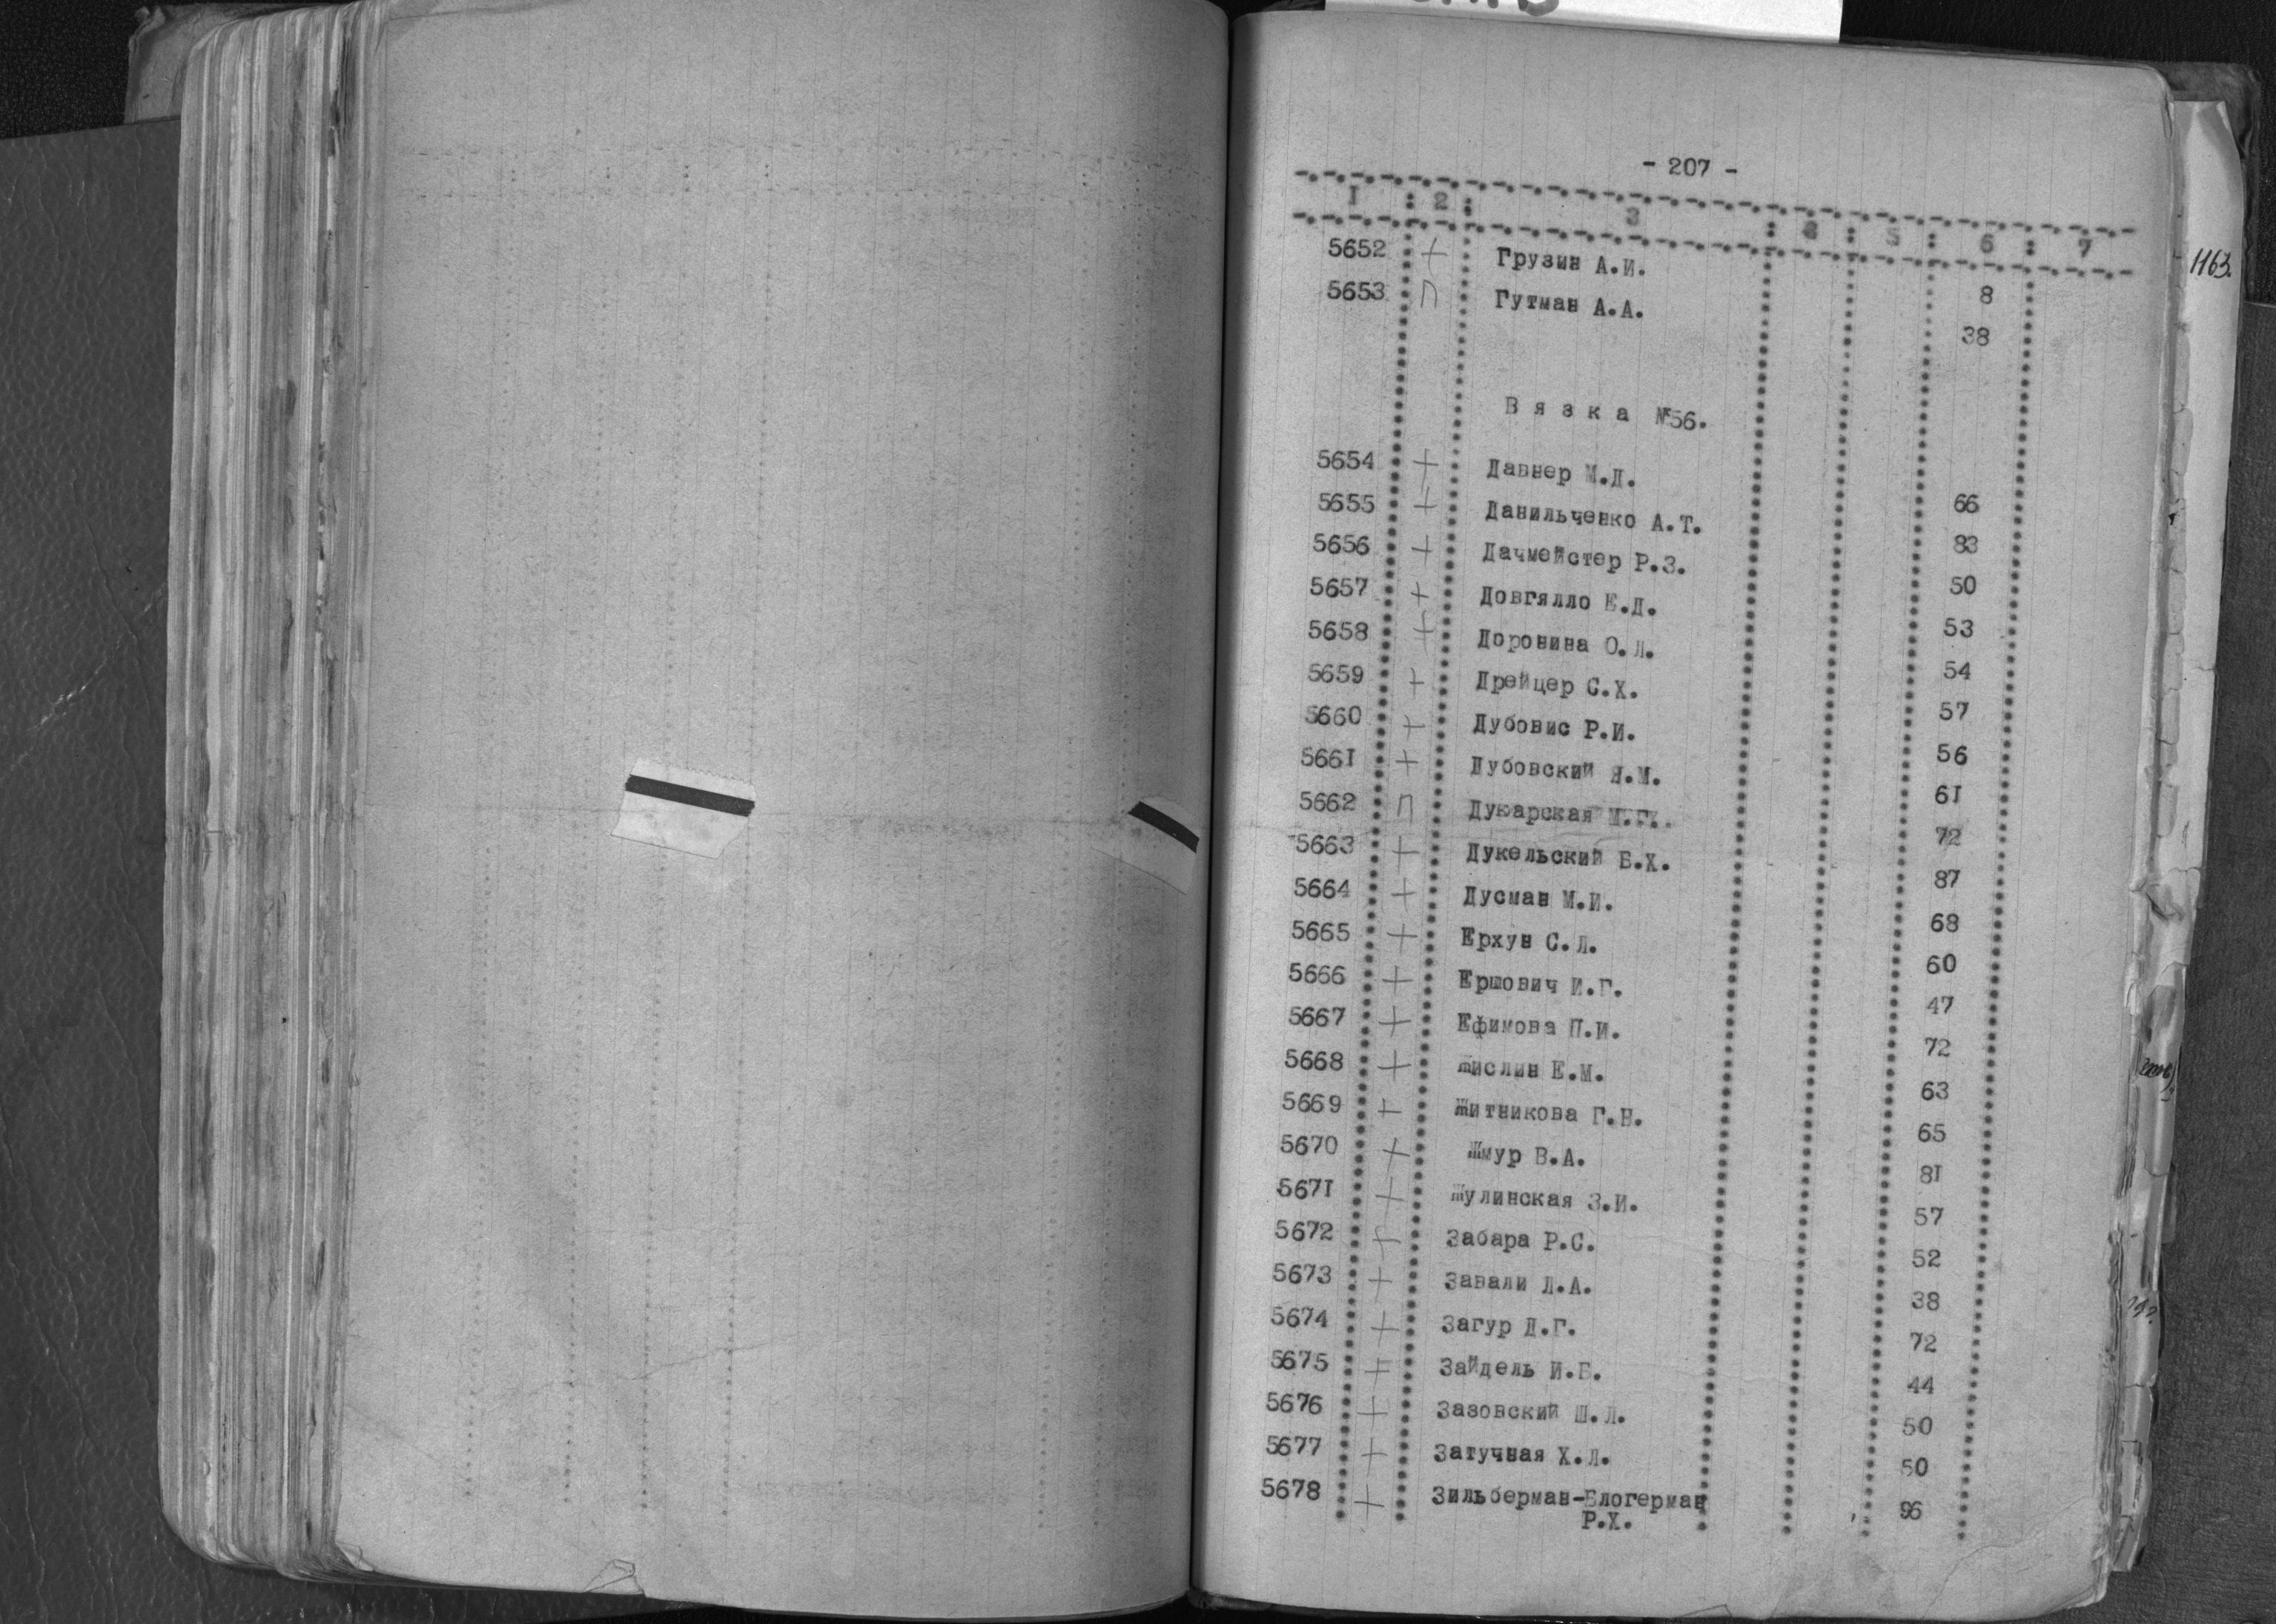 - 207 -
I : 2 : 3 : 4 : 5 : 6 : 7
5652 + Грузин А.И. 8
5653 П Гутман А.А. 38
Вязка №56.
5654 + Давнер М.Д. 66
5655 + Данильченко А.Т. 83
5656 + Дачмейстер Р.З. 50
5657 + Довгялло Е.Д. 53
5658 + Доронина О.Л. 54
5659 + Дрейцер С.Х. 57
5660 + Дубовис Р.И. 56
5661 + Дубовский Я.М. 61
5662 П Дукарская М.Г. 72
5663 + Дукельский Б.Х. 87
5664 + Дусман М.И. 68
5665 + Ерхун С.Л. 60
5666 + Ершович И.Г. 47
5667 + Ефимова П.И. 72
5668 + Жислин Е.М. 63
5669 + Житникова Г.Н. 65
5670 + Жмур В.А. 81
5671 + Жулинская З.И. 57
5672 + Забара Р.С. 52
5673 + Завали Л.А. 38
5674 + Загур Д.Г. 72
5675 + Зайдель И.Б. 44
5676 + Зазовский Ш.Л. 50
5677 + Затучная Х.Л. 50
5678 + Зильберман-Блогерман 96
Р.Х.
1163.